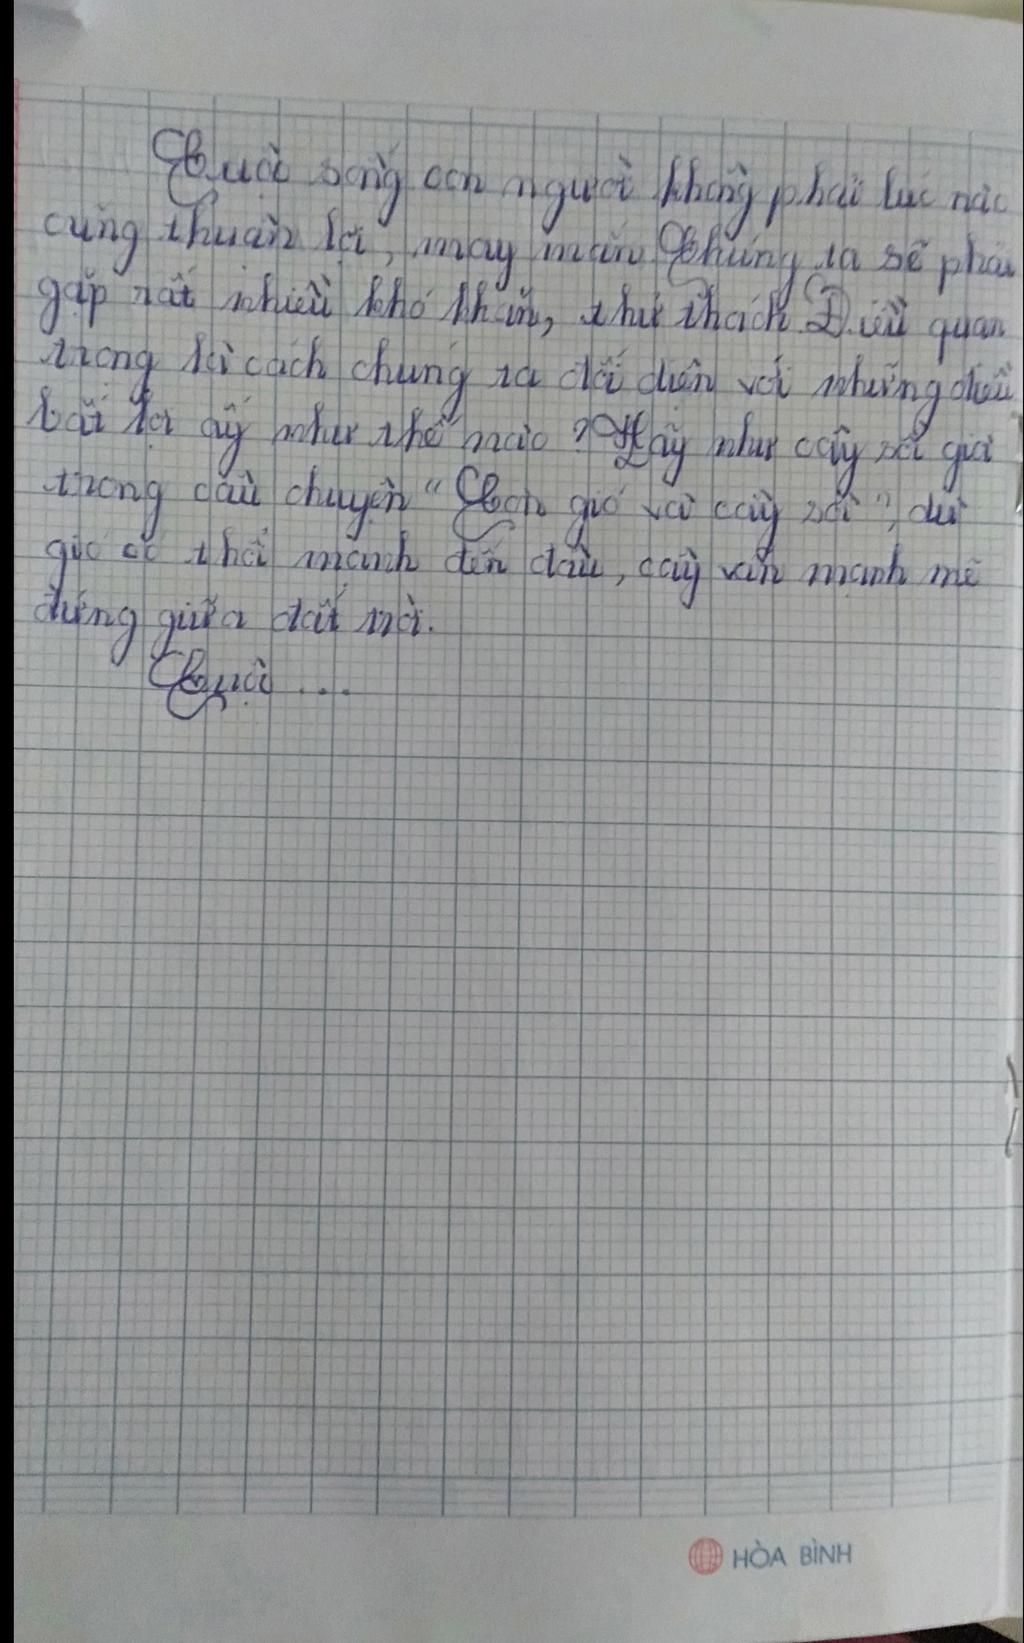 Cuộc sống con người không phải lúc nào
cũng thuận lợi, may mắn. Chúng ta sẽ phải
gặp rất nhiều khó khăn, thử thách. Điều quan
trọng là cách chúng ta đối diện với những điều
bất lợi ấy như thế nào? Hãy như cây sồi già
trong câu chuyện "Cơn gió và cây sồi", dù
gió có thể mạnh đến đâu, cây vẫn mạnh mẽ
đứng giữa đất trời.
Cuộc ...
HÒA BÌNH